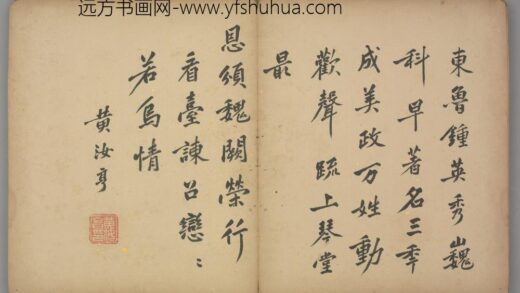 远方书画网-www.yfshuhua.com
東魯鍾英秀巍
科早著名三年
成美政万姓動
歡聲疏上琴堂
最
恩頒魏闕榮行
看臺諫召戀〻
若烏情
黄汝亨